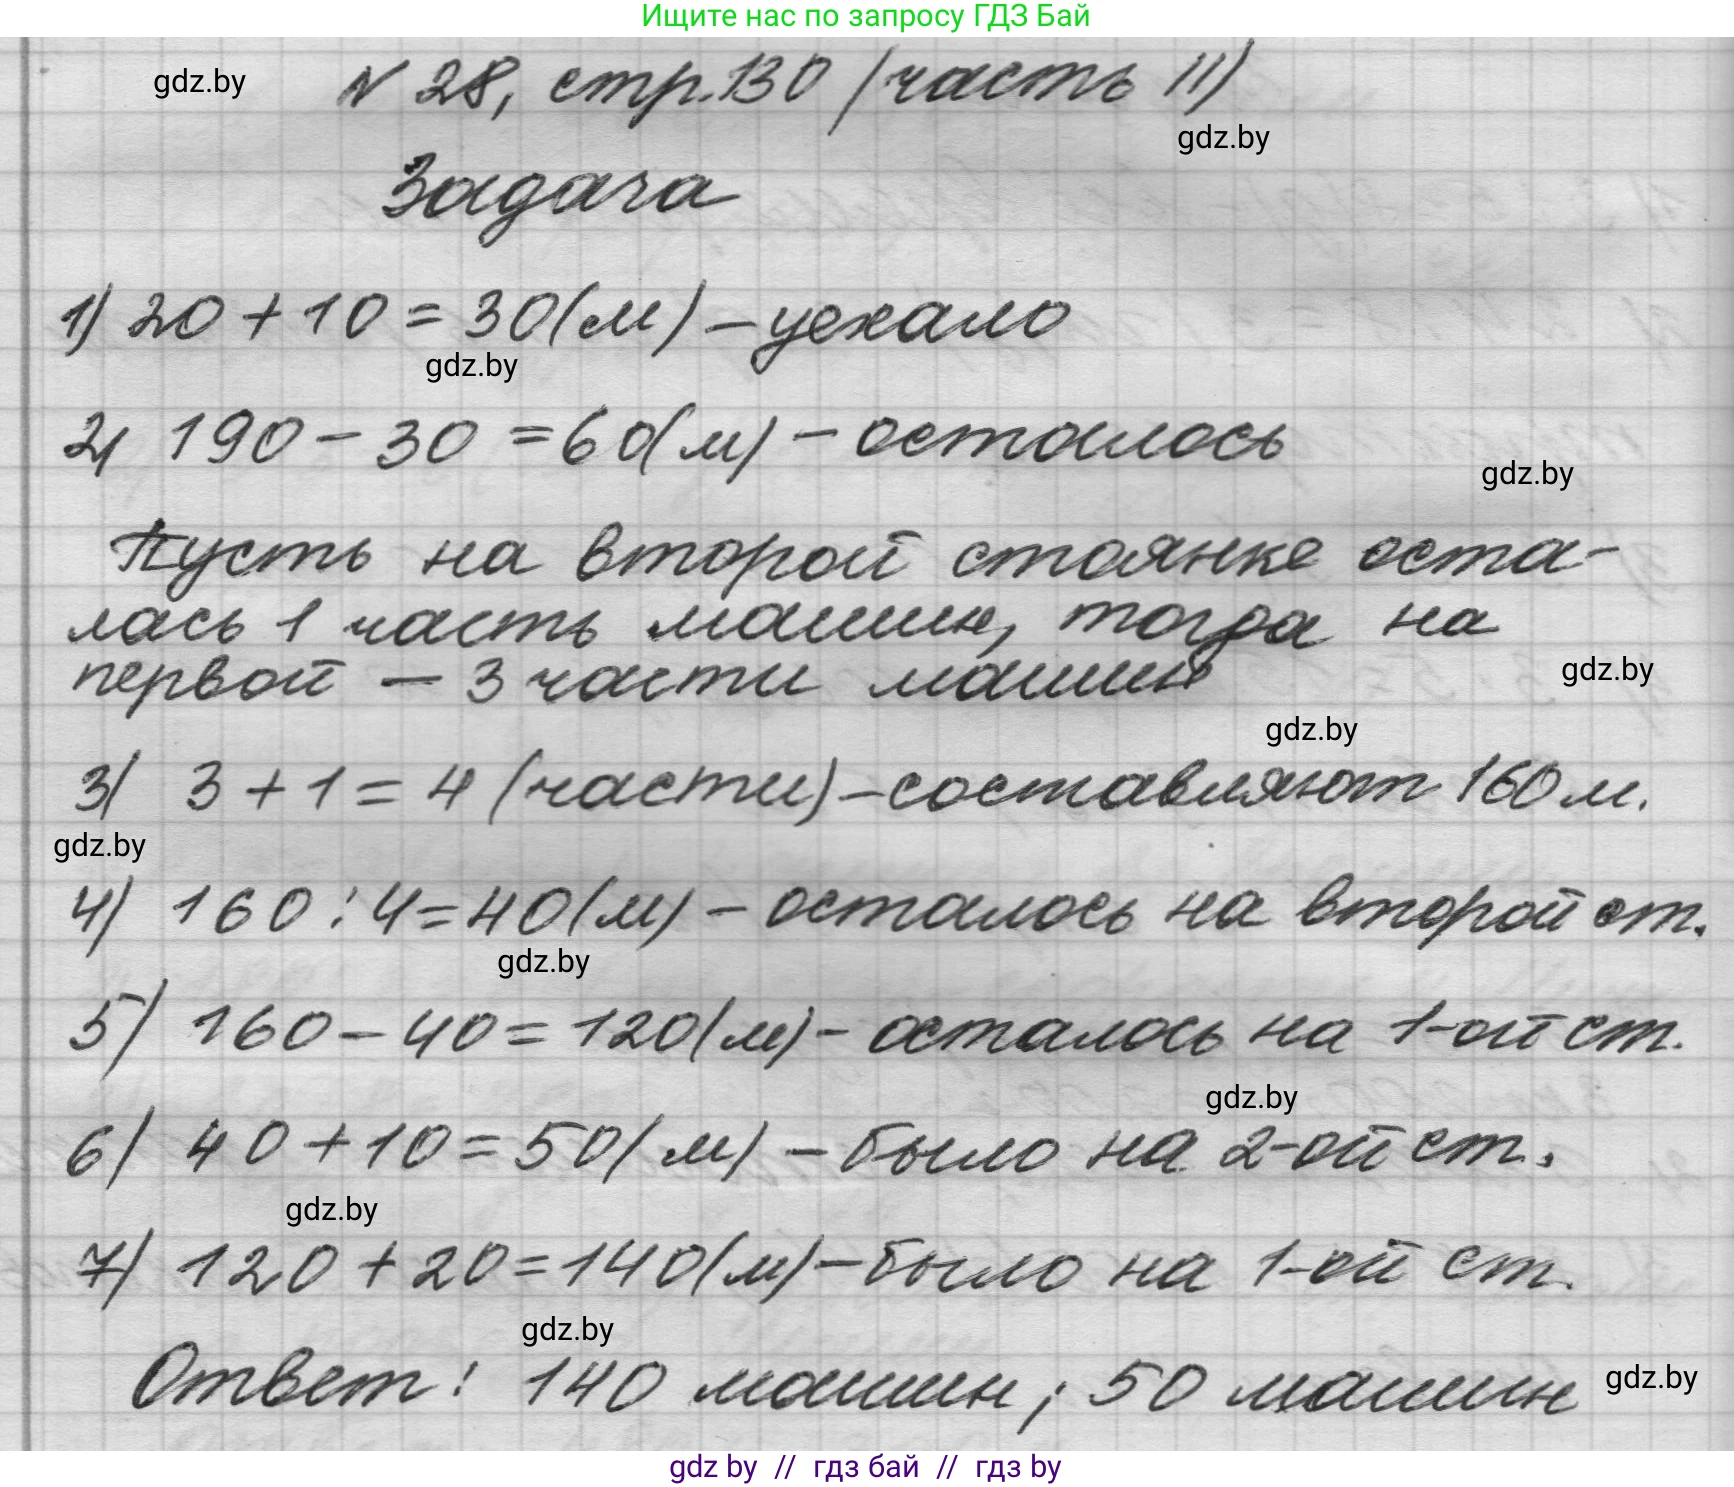 Ищите нас по запросу ГДЗ Бай
gdz.by
N 28, стр.130 (часть II)
gdz.by
Задача
1) 20 + 10 = 30(м) – уехало
gdz.by
2) 190 – 30 = 60(м) – осталось
gdz.by
Пусть на второй стоянке оста-
лась 1 часть машин, тогда на
первой – 3 части машин
gdz.by
gdz.by
3) 3 + 1 = 4 (части) – составляют 160 м.
gdz.by
4) 160 : 4 = 40(м) – осталось на второй ст.
gdz.by
5) 160 – 40 = 120(м) – осталось на 1-ой ст.
gdz.by
6) 40 + 10 = 50(м) – было на 2-ой ст.
gdz.by
7) 120 + 20 = 140(м) – было на 1-ой ст.
gdz.by
Ответ: 140 машин; 50 машин
gdz.by
gdz by // гдз бай // гдз by